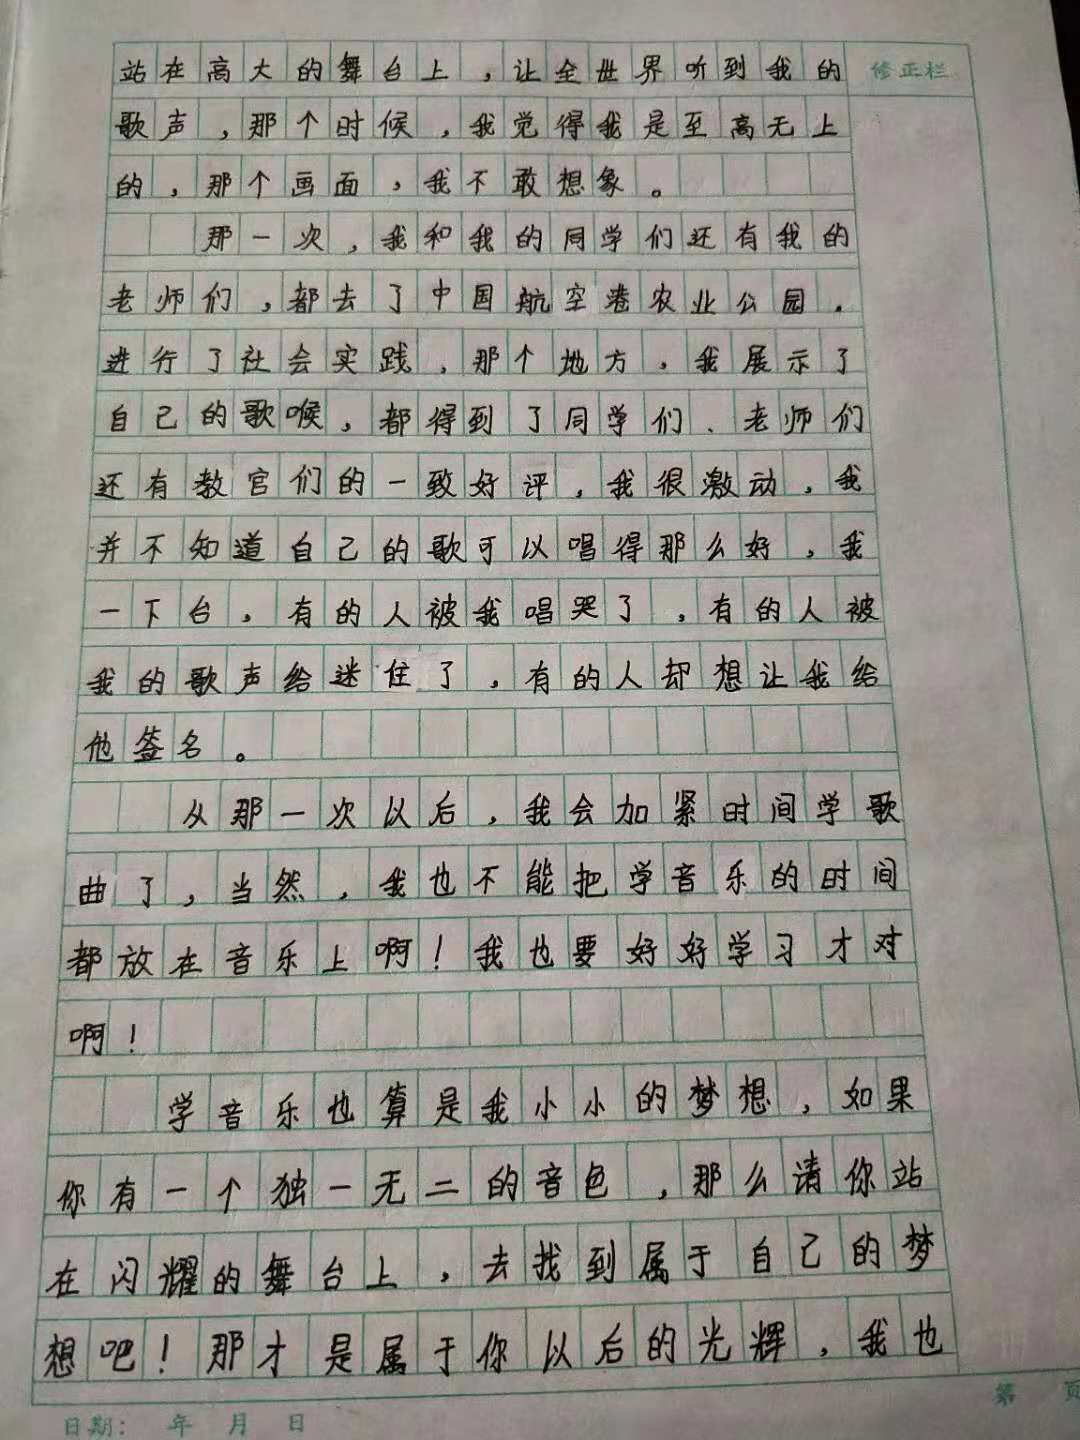 站在高大的舞台上，让全世界听到我的
修正栏
歌声，那个时候，我觉得我是至高无上
的，那个画面，我不敢想象。
那一次，我和我的同学们还有我的
老师们，都去了中国航空港农业公园。
进行了社会实践，那个地方，我展示了
自己的歌喉，都得到了同学们、老师们
还有教官们的一致好评，我很激动，我
并不知道自己的歌可以唱得那么好，我
一下台，有的人被我唱哭了，有的人被
我的歌声给迷住了，有的人却想让我给
他签名。
从那一次以后，我会加紧时间学歌
曲了，当然，我也不能把学音乐的时间
都放在音乐上啊！我也要好好学习才对
啊！
学音乐也算是我小小的梦想，如果
你有一个独一无二的音色，那么请你站
在闪耀的舞台上，去找到属于自己的梦
想吧！那才是属于你以后的光辉，我也
第 页
日期： 年 月 日